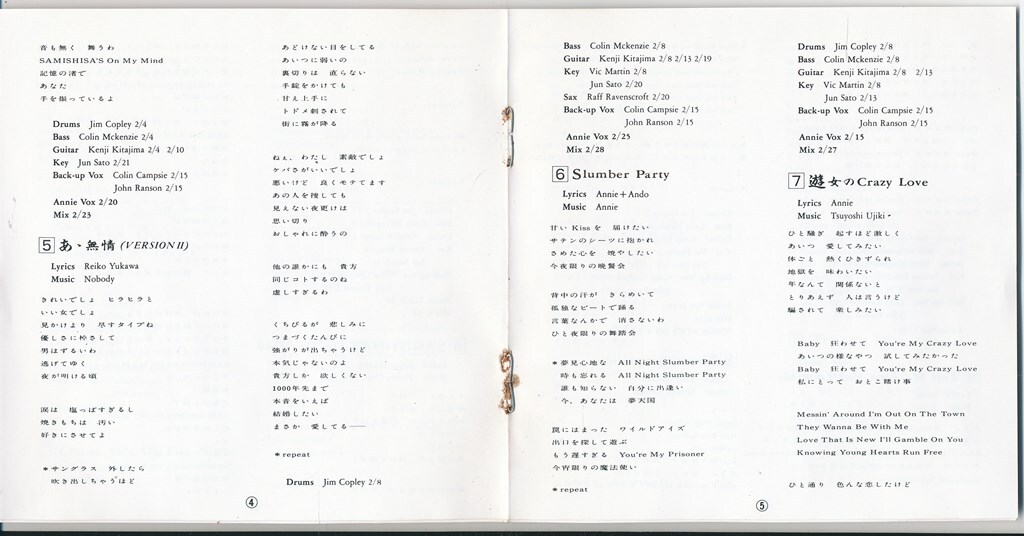 音も無く　舞うわ
SAMISHISA'S On My Mind
記憶の渚で
あなた
手を振っているよ
Drums Jim Copley 2/4
Bass Colin Mckenzie 2/4
Guitar Kenji Kitajima 2/4 2/10
Key Jun Sato 2/21
Back-up Vox Colin Campsie 2/15
John Ranson 2/15
Annie Vox 2/20
Mix 2/23
5 あゝ無情 (VERSION II)
Lyrics Reiko Yukawa
Music Nobody
きれいでしょ　ヒラヒラと
いい女でしょ
見かけより　尽すタイプね
優しさに棹さして
男はずるいわ
逃げてゆく
夜が明ける頃
涙は　塩っぱすぎるし
焼きもちは　汚い
好きにさせてよ
*サングラス　外したら
吹き出しちゃうほど
④
あどけない目をしてる
あいつに弱いの
裏切りは　直らない
手錠をかけても
甘え上手に
トドメ刺されて
街に霧が降る
ねぇ、わたし　素敵でしょ
ケバさがいいでしょ
悪いけど　良くモテてます
あの人を捜しても
見えない夜更けは
思い切り
おしゃれに酔うの
他の誰かにも　貴方
同じコトするのね
虚しすぎるわ
くちびるが　悲しみに
つまづくたんびに
強がりが出ちゃうけど
本気じゃないのよ
貴方しか　欲しくない
1000年先まで
本音をいえば
結婚したい
まさか　愛してる──
*repeat
Drums Jim Copley 2/8
Bass Colin Mckenzie 2/8
Guitar Kenji Kitajima 2/8 2/13 2/19
Key Vic Martin 2/8
Jun Sato 2/20
Sax Raff Ravenscroft 2/20
Back-up Vox Colin Campsie 2/15
John Ranson 2/15
Annie Vox 2/25
Mix 2/28
6 Slumber Party
Lyrics Annie+Ando
Music Annie
甘い Kiss を　届けたい
サテンのシーツに抱かれ
さめた心を　焼やしたい
今夜限りの晩餐会
背中の汗が　きらめいて
孤独なビートで踊る
言葉なんかで　消さないわ
ひと夜限りの舞踏会
*夢見心地な　All Night Slumber Party
時も忘れる　All Night Slumber Party
誰も知らない　自分に出逢い
今、あなたは　夢天国
罠にはまった　ワイルドアイズ
出口を探して遊ぶ
もう遅すぎる　You're My Prisoner
今宵限りの魔法使い
*repeat
Drums Jim Copley 2/8
Bass Colin Mckenzie 2/8
Guitar Kenji Kitajima 2/8 2/13
Key Vic Martin 2/8
Jun Sato 2/13
Back-up Vox Colin Campsie 2/15
John Ranson 2/15
Annie Vox 2/15
Mix 2/27
7 遊女の Crazy Love
Lyrics Annie
Music Tsuyoshi Ujiki
ひと騒ぎ　起すほど激しく
あいつ　愛してみたい
体ごと　熱くひきずられ
地獄を　味わいたい
年なんて　関係ないと
とりあえず　人は言うけど
騙されて　楽しみたい
Baby　狂わせて　You're My Crazy Love
あいつの様なやつ　試してみたかった
Baby　狂わせて　You're My Crazy Love
私にとって　おとこ賭け事
Messin' Around I'm Out On The Town
They Wanna Be With Me
Love That Is New I'll Gamble On You
Knowing Young Hearts Run Free
ひと通り　色んな恋したけど
⑤